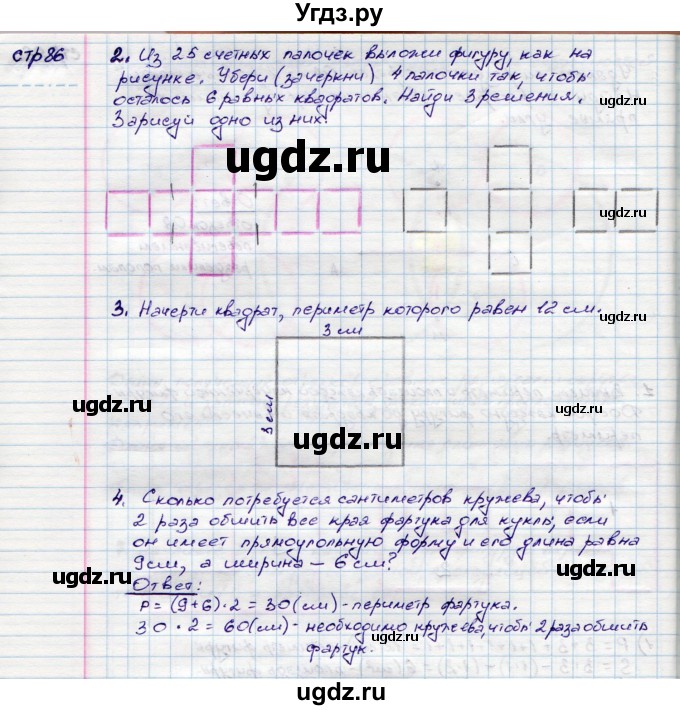 Угдз.ру
стр86
2. Из 25 счетных палочек выложи фигуру, как на
рисунке. Убери (зачеркни) 4 палочки так, чтобы
осталось 6 равных квадратов. Найди 3 решения.
Зарисуй одно из них.
ugdz.ru
ugdz.ru
ugdz.ru
3. Начерти квадрат, периметр которого равен 12 см.
3 см
ugdz.ru
ugdz.ru
3 см
ugdz.ru
4. Сколько потребуется сантиметров кружева, чтобы
2 раза обшить все края фартука для куклы, если
он имеет прямоугольную форму и его длина равна
9см, а ширина – 6 см?
ugdz.ru
ugdz.ru
Ответ:
P = (9+6)·2 = 30(см) - периметр фартука.
30 · 2 = 60(см) - необходимо кружева, чтобы 2 раза обшить
фартук.
ugdz.ru
ugdz.ru